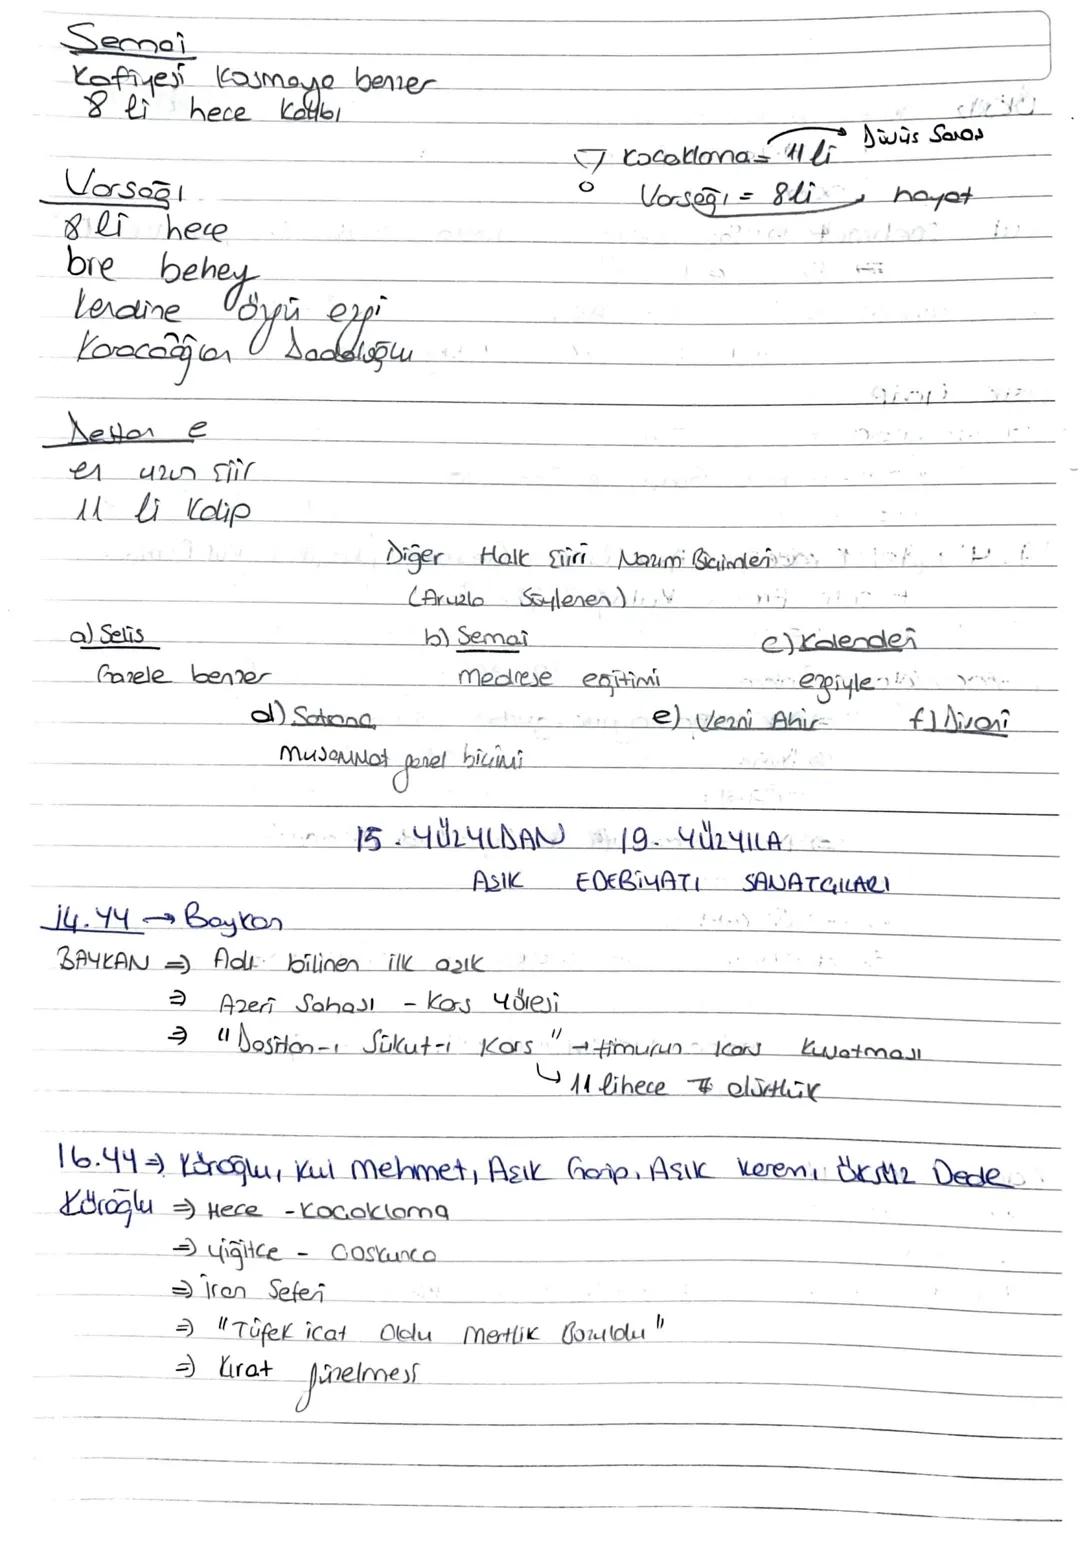 Semai
Kafiyesi Koşmaya benzer
8 li hece Kalıbı
! Koçaklama = 11 li → Dövüş Savaş
Varsağı = 8li → hayat
Varsağı
8 li hece
bre behey
kendine özgü ezgi
Karacaoğlan Dadaloğlu
Destan
en uzun şiir
11 li Kalıp
Diğer Halk Şiiri Nazım Biçimleri
(Aruzla Söylenen)
a) Selis b) Semai c) Kalenderi
Gazele benzer Medrese eğitimi ezgiyle
d) Satranç e) Vezni Ahir f) Divani
Musammat genel biçimi
15. YÜZYILDAN 19. YÜZYILA
AŞIK EDEBİYATI SANATÇILARI
14.YY → Baykan
BAYKAN ⇒ Adı bilinen ilk aşık
⇒ Azeri Sahası - Kars Yöresi
⇒ "Dasitan-ı Sükut-ı Kars" → timurun Kars Kuşatması
↳ 11 li hece 7 dörtlük
16.YY ⇒ Köroğlu, Kul Mehmet, Aşık Garip, Aşık Kerem, Öksüz Dede
Köroğlu ⇒ Hece - Koçaklama
⇒ Yiğitçe - Coşkunca
⇒ İran Seferi
⇒ "Tüfek icat Oldu Mertlik Bozuldu"
⇒ Kırat güzelmesi